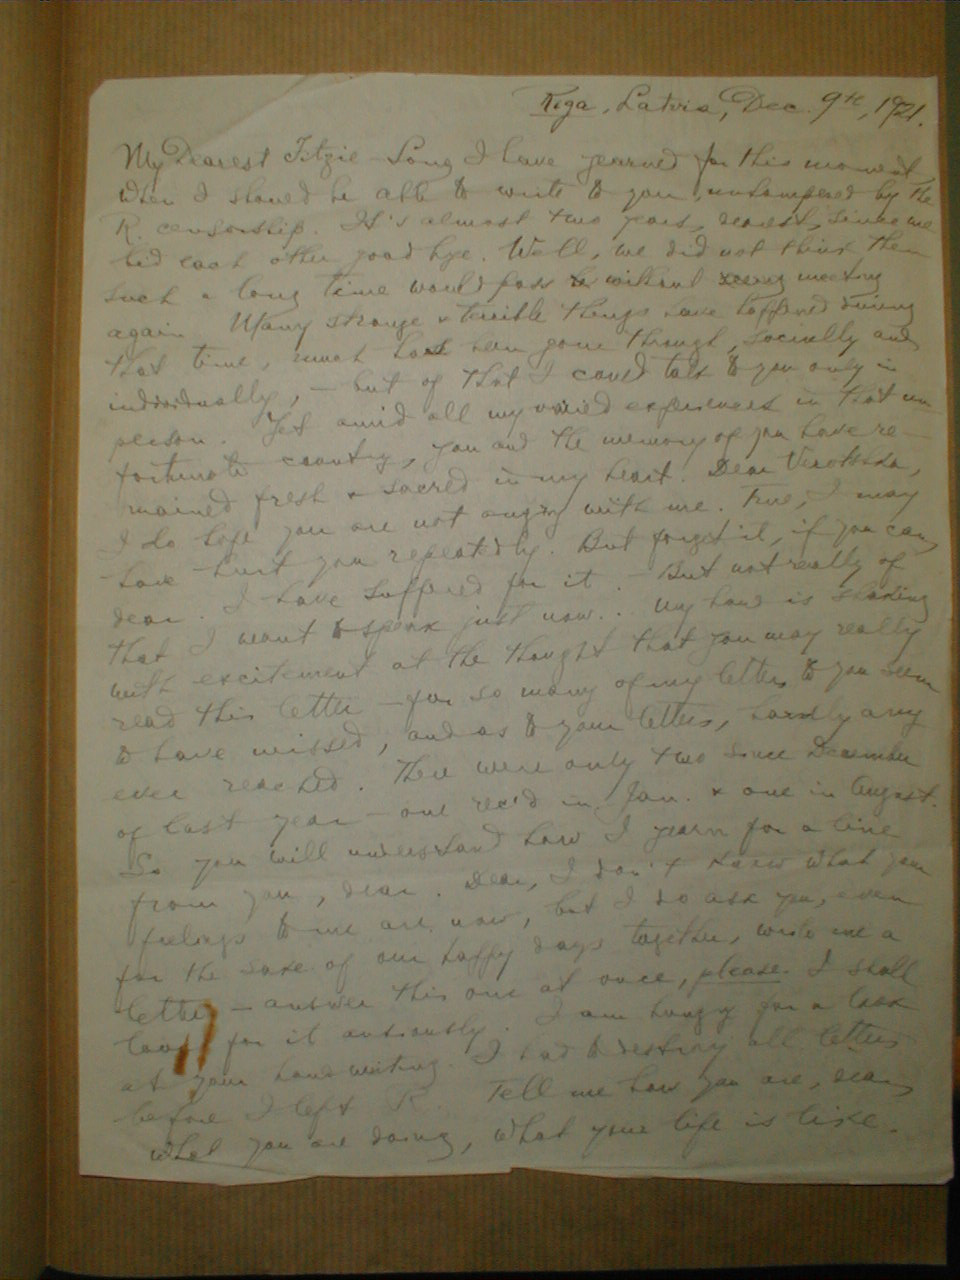 Riga, Latvia, Dec. 9th, 1921.
My Dearest Fitzie – Long I have yearned for this moment
when I should be able to write to you, unhampered by the
R. censorship. It's almost two years, dearest, since we
bid each other good bye. Well, we did not think then
such a long time would pass without meeting
again. Many strange & terrible things have happened during
that time, much has been gone through, socially and
individually, – but of that I could talk to you only in
person. Yet amid all my varied experiences in that un-
fortunate country, you and the memory of you have re-
mained fresh & sacred in my heart. Dear
I do hope you are not angry with me. True, I may
have hurt you repeatedly. But forget it, if you can,
dear. I have suffered for it. – But not really of
that I want to speak just now. . My hand is shaking
with excitement at the thought that you may really
read this letter – for so many of my letters to you seem
to have missed, and as to your letters, hardly any
ever reached. There were only two since December
of last year – one rec'd in Jan. & one in August.
So you will understand how I yearn for a line
from you, dear. Dear, I don't know what your
feelings to me are now, but I do ask you, even
for the sake of our happy days together, write me a
letter – answer this one at once, please. I shall
look for it anxiously. I am hungry for a look
at your handwriting. I had to destroy all letters
before I left R. Tell me how you are, dear,
what you are doing, what your life is like.